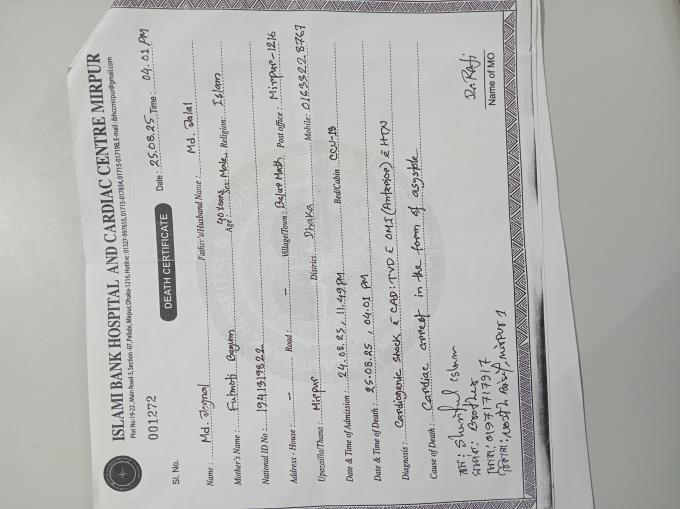 ISLAMI BANK HOSPITAL AND CARDIAC CENTRE MIRPUR
Plot No:19-22, Main Road-3, Section -07, Pallabi, Mirpur, Dhaka-1216, Hotline :
001272
DEATH CERTIFICATE
Date : 25.08.25 Time : 04.01 PM
SL No.
Name : Md. Joynal Father's/Husband Name : Md. Jalal
Mother's Name : Fulmoti Begum Age : 40 years Sex: Male Religion: Islam
National ID No : 1941319822
Address - House : – Road : – Village/Town : Post office : Mirpur-1216
Upazilla/Thana : Mirpur District : Dhaka Mobile: 01633228767
Date & Time of Admission : 24.08.25, 11.49 PM Bed/Cabin CCU-13
Date & Time of Death : 25.08.25, 04.01 PM
Diagnosis : Cardiogenic shock c̄ CAD: TVD c̄ OMI (Anterior) c̄ HTN
Cause of Death : Cardiac arrest in the form of asystole
নাম: Islam
সম্পর্ক: Brother
01971717917
Mirpur 1
Dr. Rafi
Name of MO